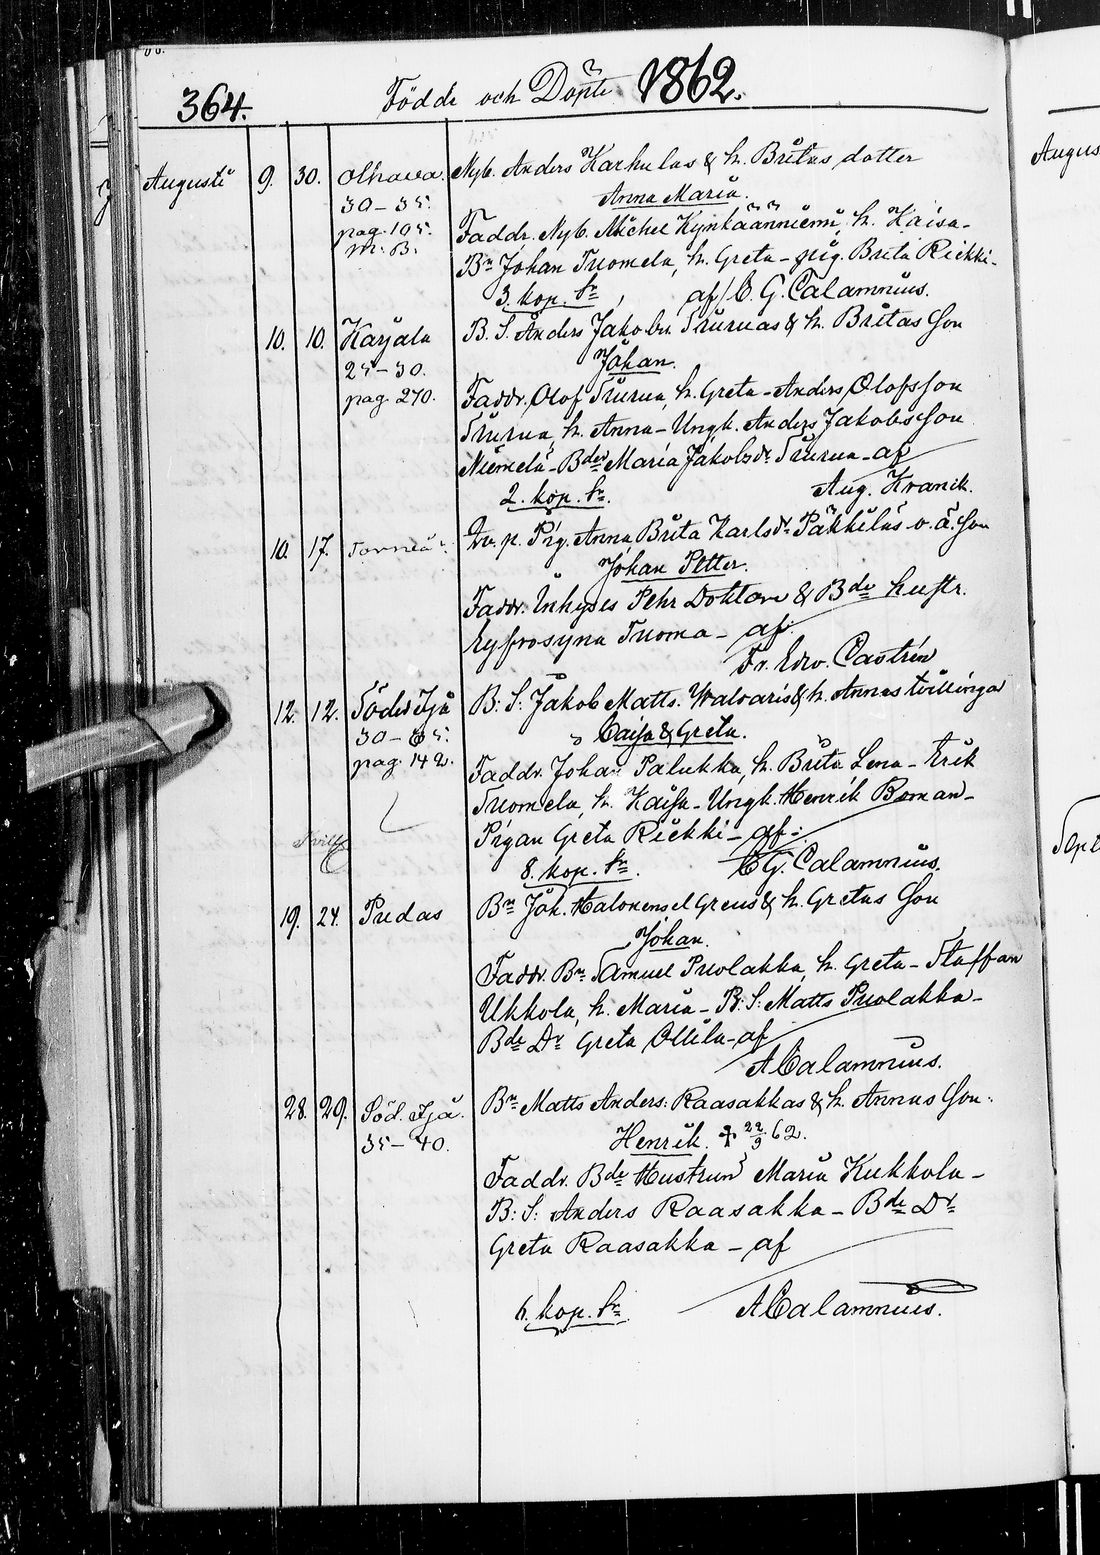 364. Födde och Döpte 1862.
Augusti 9. 30. Olhava. Nyb. Anders Karhulas & h. Britas dotter
30–35. Anna Maria.
pag. 105. Faddr. Nyb. Michel Kynkäänniemi, h. Kaisa–
m. B. Bn Johan Tuomela, h. Greta – pig. Brita Riekki–
3. kop. sr af C. G. Calamnius.
10. 10. Karjala B. S. Anders Jakobss. Truruas & h. Britas Son
25–30. Johan.
pag. 270. Faddr. Olof Trurua, h. Greta – Anders Olofsson
Trurua, h. Anna – Ungk. Anders Jakobsson
Niemelä – Bde Maria Jakobsdr Trurua – af
2. kop. sr. Aug. Kranck.
10. 17. Torneå Pig. Anna Brita Karlsdr Päkkiläs o. ä. Son
Johan Petter.
Faddr. Inhyses Pehr Doktare & Bde hustr.
Eyfrosyna Tuoma – af
Fr. Edw. Castrén
12. 12. Söder Ijå B. S. Jakob Matts. Walvaris & h. Annas tvillingar
30–35. Caisa & Greta.
pag. 142. Faddr. Johan Palukka, h. Brita Lena – Erik
Tuomela, h. Kaisa – Ungk. Henrik Roman–
Pigan Greta Riekki – af:
8. kop. sr. C G. Calamnius.
19. 24. Pudas Bn Joh. Halonens el Greus & h. Gretas Son
Johan.
Faddr. Bn Samuel Puolakka, h. Greta – Staffan
Ukkola, h. Maria – B: S: Matts Puolakka –
Bde Dr Greta Ollila – af
A Calamnius.
28. 29. Söd. Ijå. Bn Matts Anders: Raasakkas & h. Annas Son.
35–40. Henrik. ✝ 22/9 62.
Faddr. Bde Hustrun Maria Kukkola –
B: S: Anders Raasakka – Bde Dr
Greta Raasakka – af
6. kop. sr A Calamnius.
Augus
Sept